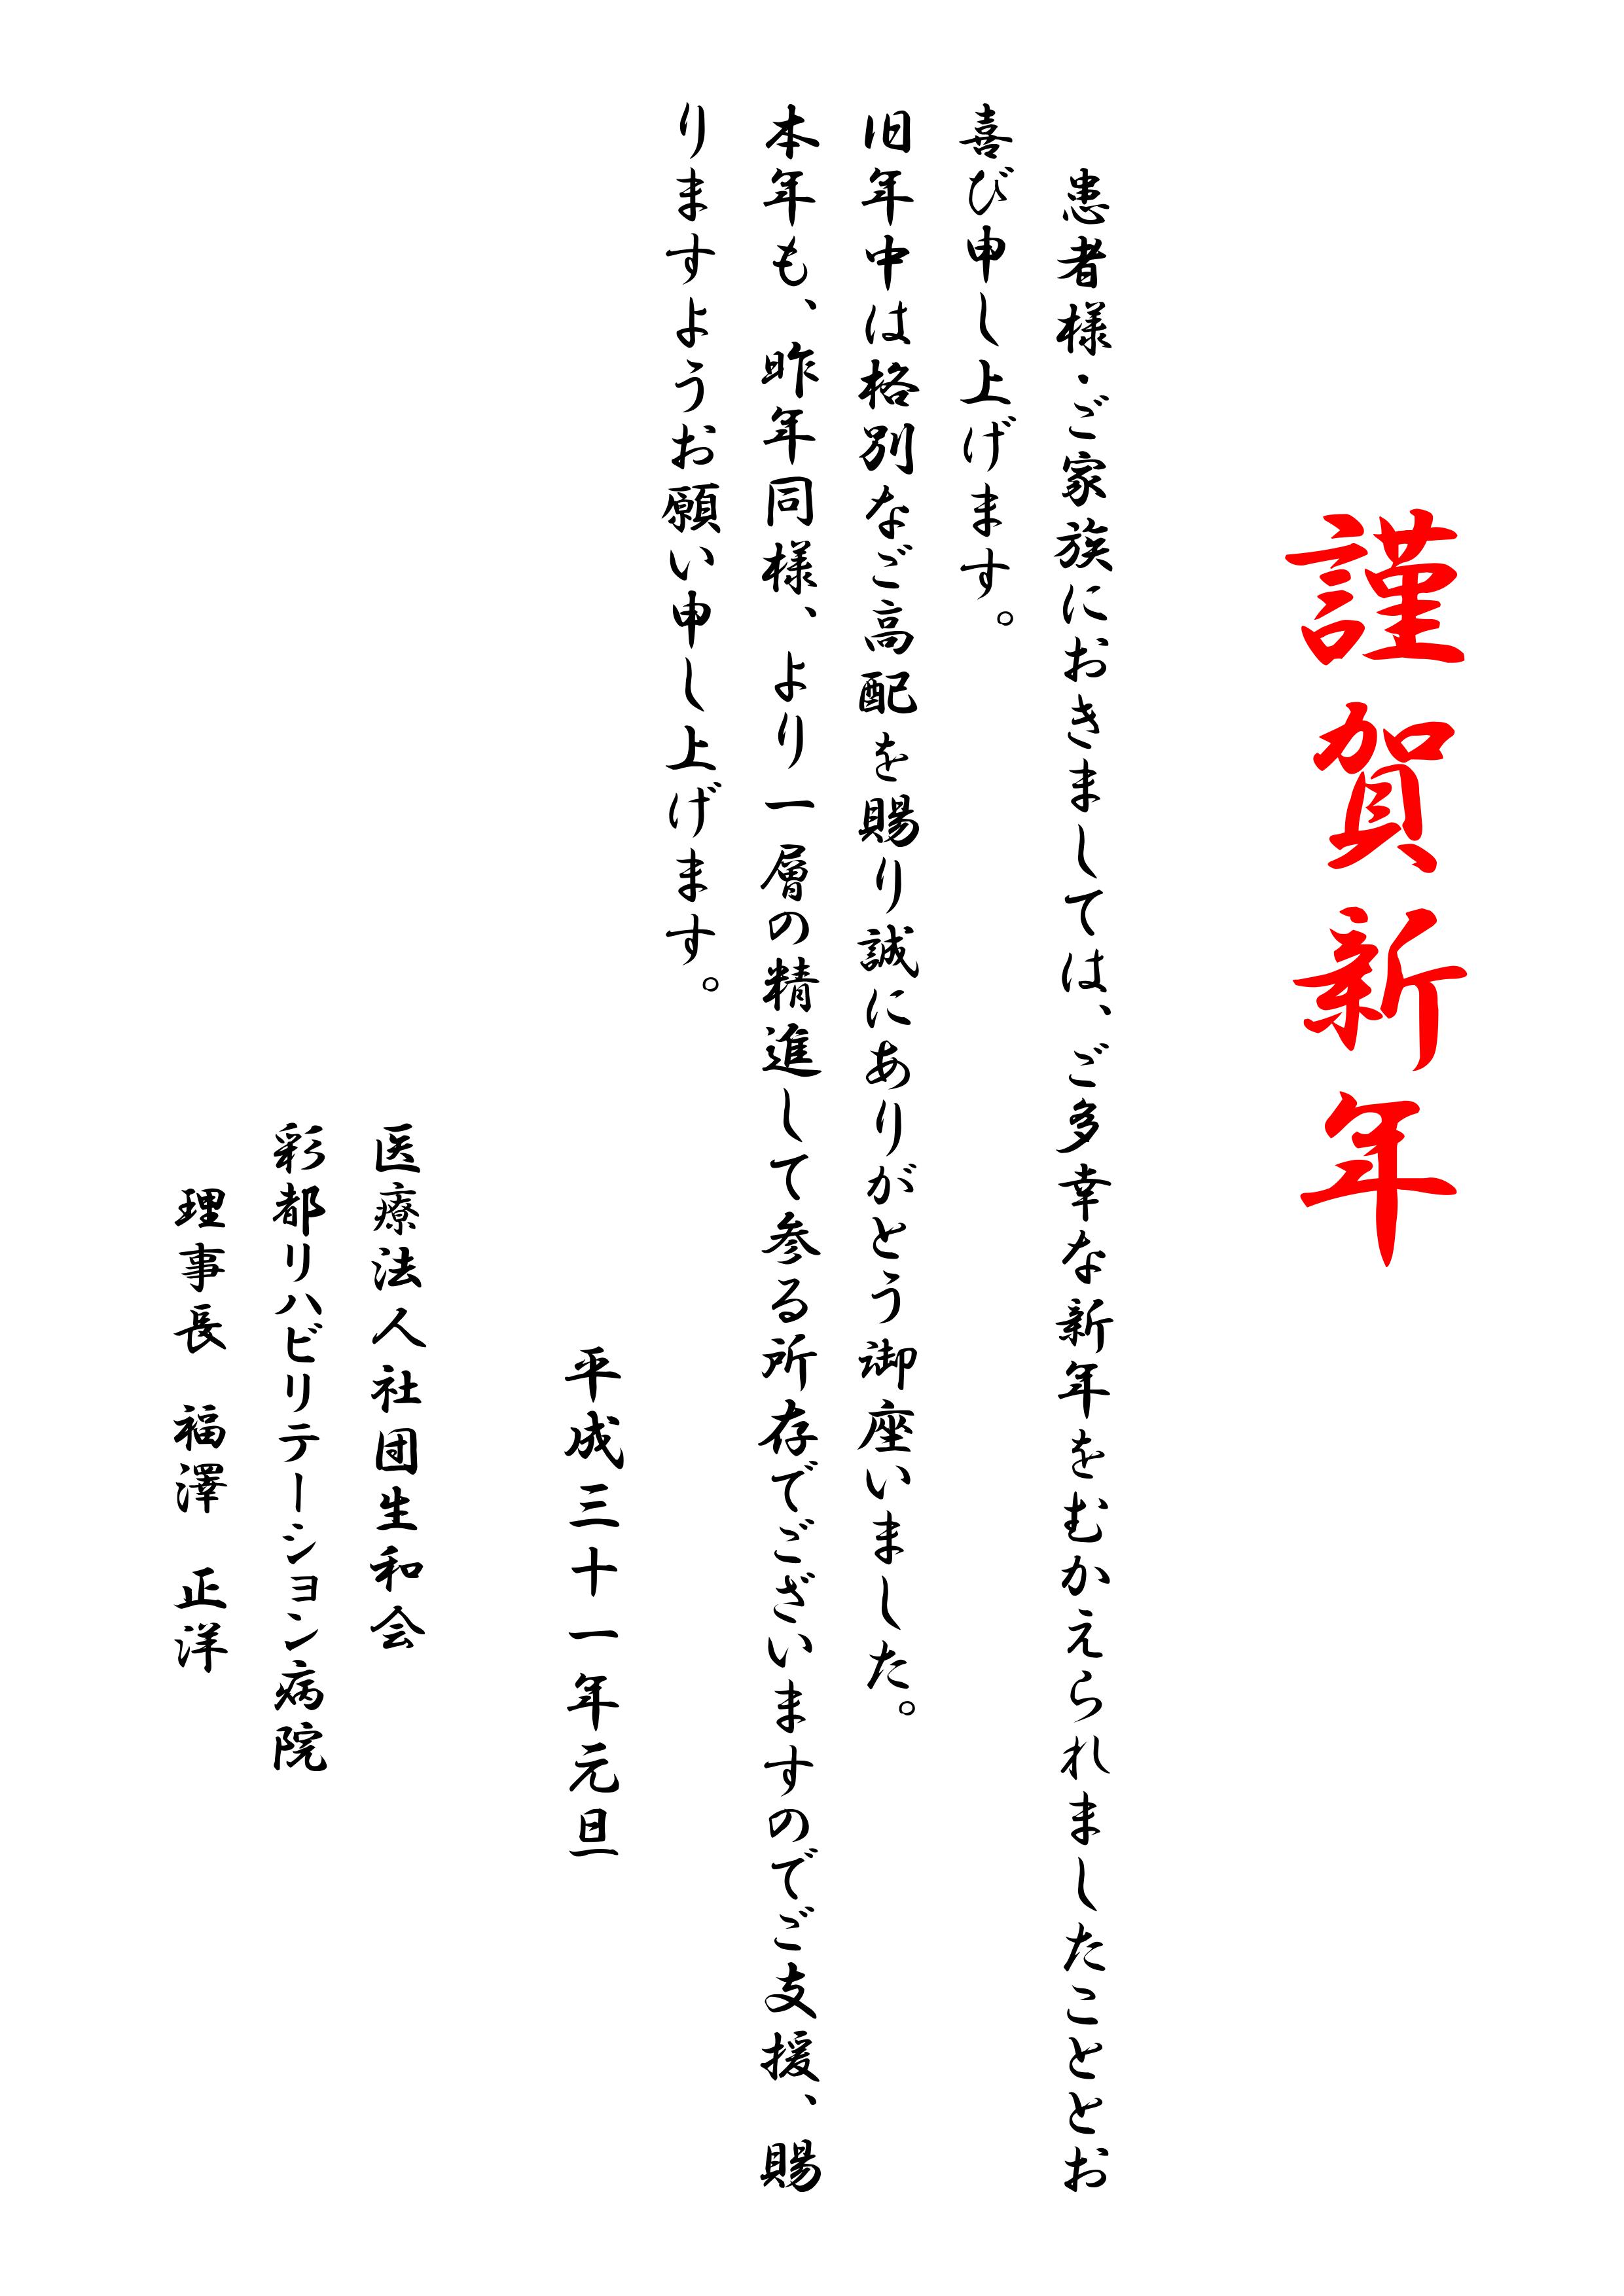 謹賀新年
患者様・ご家族におきましては、ご多幸な新年をむかえられましたこととお
喜び申し上げます。
旧年中は格別なご高配を賜り誠にありがとう御座いました。
本年も、昨年同様、より一層の精進して参る所存でございますのでご支援、賜
りますようお願い申し上げます。
平成三十一年元旦
医療法人社団生和会
彩都リハビリテーション病院
理事長　福澤　正洋